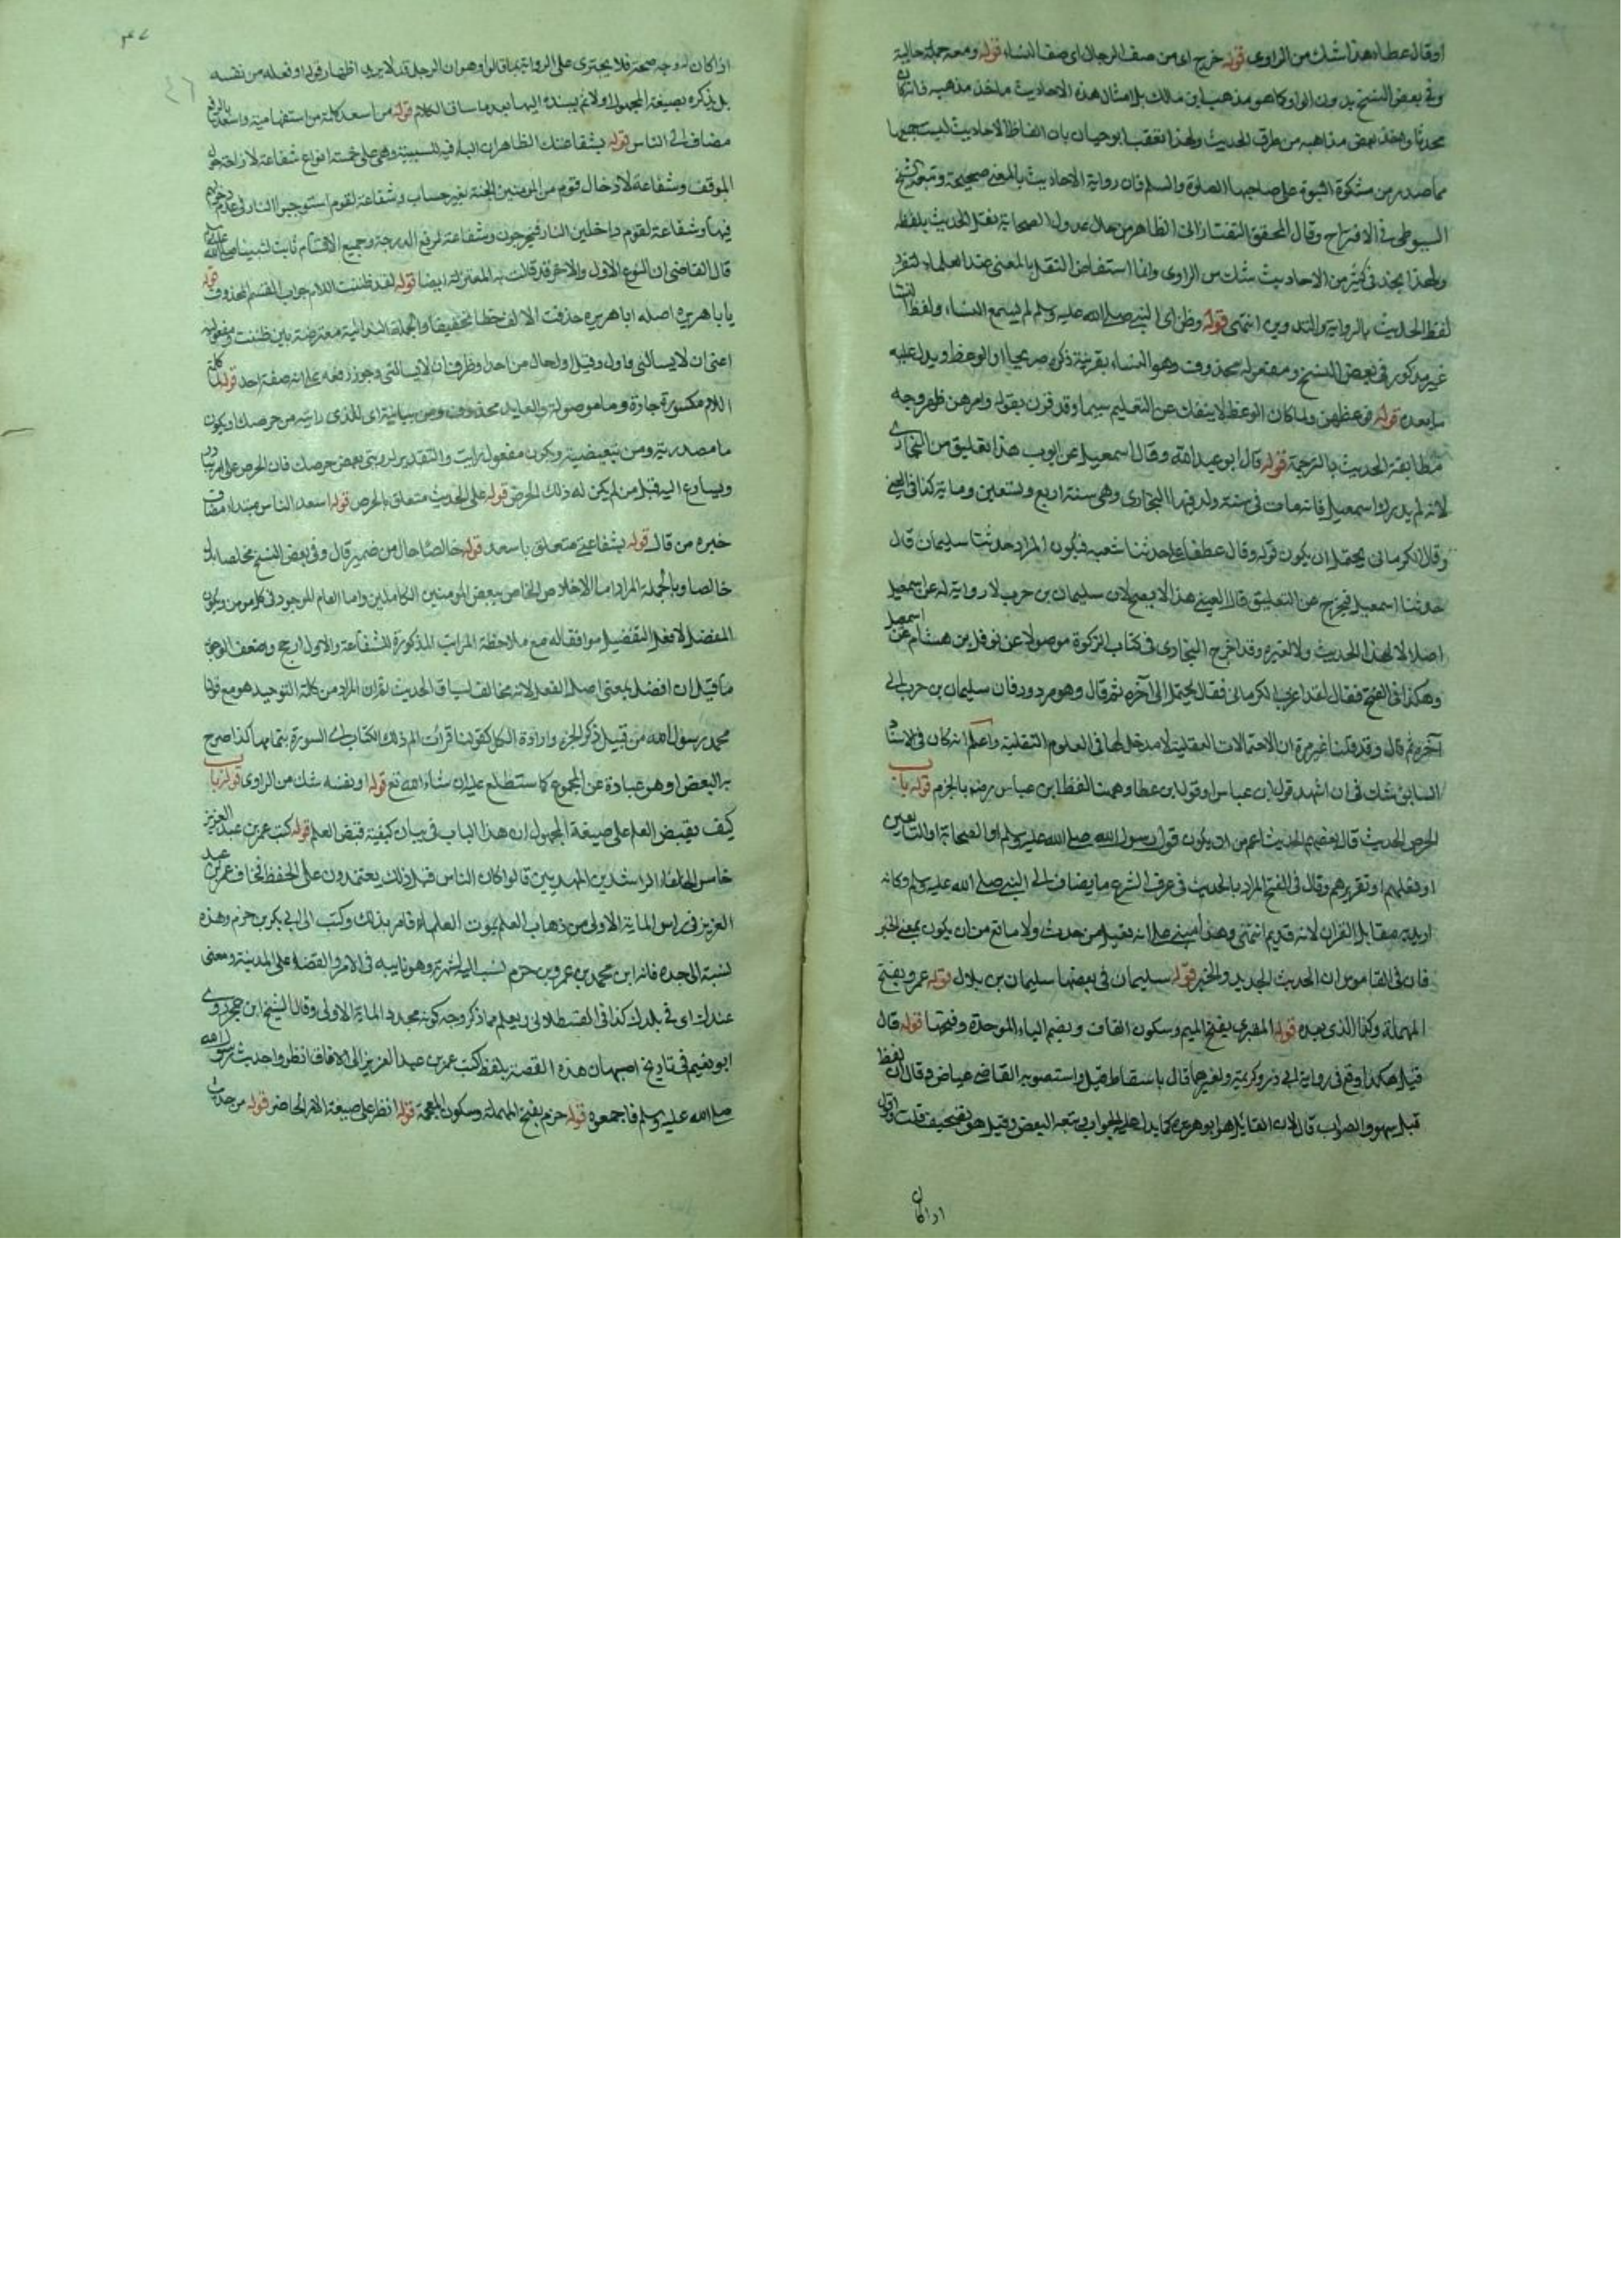 او قال عطاء هذا شك من الراوي قوله خرج اي من صف الرجال اى صف النساء قوله ومعه جملة حالية
وفي بعض النسخ بدون الواو كما هو مذهب ابن مالك بل امثال هذه الاحاديث ماخذ مذهبه فانه كان
محدثا واخذ بعض مذاهبه من طرق الحديث ولهذا تعقب ابو حيان بان الفاظ الاحاديث ليست جميعها
مما صدر من مشكوة النبوة على صاحبها الصلوة والسلم فان رواية الاحاديث بالمعنى صحيحة وتبعه الشيخ
السيوطى فى الاقتراح وقال المحقق التفتازانى الظاهر من حال عدول الصحابة نقل الحديث بلفظه
ولهذا يجد فى كثير من الاحاديث شك من الراوى ولما استفاض النقل بالمعنى عند العلماء
لفظ الحديث بالرواية والتدوين انتهى قوله وظن اى النبي صلى الله عليه وسلم لم يسمع النساء ولفظ النساء
غير مذكور فى بعض النسخ ومفعوله محذوف وهو النساء بقرينة ذكره صريحا او الوعظ ويدل عليه
ما بعده قوله فوعظهن ولما كان الوعظ لا ينفك عن التعليم سيما وقد قرن بقوله وامرهن ظهر وجه
مطابقة الحديث بالترجمة قوله قال ابو عبد الله وقال اسمعيل عن ايوب هذا تعليق من البخارى
لانه لم يدرك اسمعيل فانه مات فى سنة ولد فيها البخارى وهى سنة اربع وتسعين وماية كذا فى العيني
وقال الكرمانى يحتمل ان يكون قوله وقال عطفا على حدثنا شعبه فيكون المراد حدثنا سليمان قال
حدثنا اسمعيل فيخرج عن التعليق قال العيني هذا لا يصح لان سليمان بن حرب لا رواية له عن اسمعيل
اصلا لا لهذا الحديث ولا لغيره وقد اخرج البخارى فى كتاب الزكوة موصولا عن نوفل بن هشام عن اسمعيل
وهكذا فى الفتح فقال لقد اغرب الكرمانى فقال يحتمل الى آخره ثم قال وهو مردود فان سليمان بن حرب الى
آخره ثم قال وقد قلنا غير مرة ان الاحتمالات العقلية لا مدخل لها فى العلوم النقلية واعلم انه كان فى الاسناد
السابق شك فى ان اشهد قول ابن عباس او قول ابن عطا وههنا لفظ ابن عباس رضه بالجزم قوله باب
الحرص الحديث قال بعضهم الحديث اعم من ان يكون قول رسول الله صلى الله عليه وسلم او الصحابة او التابعين
او فعلهم او تقريرهم وقال فى الفتح المراد بالحديث فى عرف الشرع ما يضاف الى النبي صلى الله عليه وسلم وكانه
اريد به مقابل القران لانه قديم انتهى وهذا مبنى على انه فعيل من حدث ولا مانع من ان يكون بمعنى الخبر
فان فى القاموس ان الحديث الجديد والخبر قوله سليمان فى بعضها سليمان بن بلال قوله عمرو بفتح
المهملة وكذا الذى بعده قوله المقبرى بفتح الميم وسكون القاف وبضم الباء الموحدة وفتحها قوله قال
قيل هكذا وقع فى رواية ابى ذر وكريمة ولغيرهما قال باسقاط قيل واستصوبه القاضى عياض وقال ان لفظ
قيل سهو والصواب قال لان القايل هو ابو هريره كما يدل عليه الجواب وتبعه البعض وقيل هو تصحيف قلت واقول
اذا كان
اذا كان له وجه صحة فلا يجترى على الرواية بما قالوا وهو ان الرجل قد لا يريد اظهار قوله او فعله من نفسه
بل يذكره بصيغة المجهول اولا ثم يسنده اليها بعد ما ساق الكلام قوله من اسعد كلمة من استفهامية واسعد بالرفع
مضاف الى الناس قوله بشفاعتك الظاهر ان الباء فيه للسببية وهى على خمسة انواع شفاعة لازاحة هول
الموقف وشفاعة لادخال قوم من المؤمنين الجنة بغير حساب وشفاعة لقوم استوجبوا النار فى عدم دخولهم
فيها وشفاعة لقوم داخلين النار فيخرجون وشفاعة لرفع الدرجة وجميع الاقسام ثابت لنبينا صلى الله عليه
قال القاضى ان النوع الاول والاخر قد قالت به المعتزلة ايضا قوله لقد ظننت اللام جواب القسم المحذوف قوله
يا با هريره اصله ابا هريره حذفت الالف خطا تخفيفا والجملة الندائية معترضة بين ظننت ومفعوله
اعنى ان لا يسالنى واول وقيل او لحال من احد او ظرف ان لا يسالنى وجوز رفعه على انه صفة احد قوله لما كلمة
اللام مكسورة جازة وما موصولة والعايد محذوف ومن بيانية اى للذى رايته من حرصك او يكون
ما مصدرية ومن تبعيضية ويكون مفعول رايت والتقدير لرويتى بعض حرصك فان الحرص على امر
ويسارع اليه قبل من لم يكن له ذلك الحرص قوله على الحديث متعلق بالحرص قوله اسعد الناس مبتداء مضاف
خبره من قال قوله بشفاعتى متعلق باسعد قوله خالصا حال من ضمير قال وفى بعض النسخ مخلصا بدل
خالصا وبالجملة المراد اما الاخلاص الخاص ببعض المومنين الكاملين واما العام الموجود فى كل مومن ويكون
المفضل لافعل التفضيل موافقا له مع ملاحظة المراتب المذكورة للشفاعة والاول ارجح واضعف الوجوه
ما قيل ان افضل بمعنى اصل الفعل لانه مخالف لسياق الحديث بقران المراد من كلمة التوحيد هو مع قول
محمد رسول الله من قبيل ذكر الجزء وارادة الكل كقولنا قرات الم ذلك الكتاب اى السورة بتمامها كذا صرح
به البعض او هو عبادة عن المجموع كما ستطلع عليه ان شاء الله تع قوله او نفسه شك من الراوى قوله باب
كيف يقبض العلم على صيغة المجهول ان هذا الباب فى بيان كيفية قبض العلم قوله كتب عمر بن عبد العزيز
خامس الخلفاء الراشدين المهديين قالوا كان الناس قبل ذلك يعتمدون على الحفظ فخاف عمر بن عبد
العزيز فى راس الماية الاولى من ذهاب العلم بموت العلماء فامر بذلك وكتب الى ابى بكر بن حزم وهذه
نسبة الى جده فانه ابن محمد بن عمرو بن حزم نسب اليه لشهرته وهو نايبه فى الامر والقضاء على المدينة ومعنى
عندك اى فى بلدك كذا فى القسطلانى ويعلم مما ذكر وجه كونه مجدد الماية الاولى وقال الشيخ ابن حجر روى
ابو نعيم فى تاريخ اصبهان هذه القصة بلفظ كتب عمر بن عبد العزيز الى الافاق انظروا حديث رسول الله
صلى الله عليه وسلم فاجمعوه قوله حزم بفتح المهملة وسكون المعجمة قوله انظر على صيغة الامر الحاضر قوله من حديث